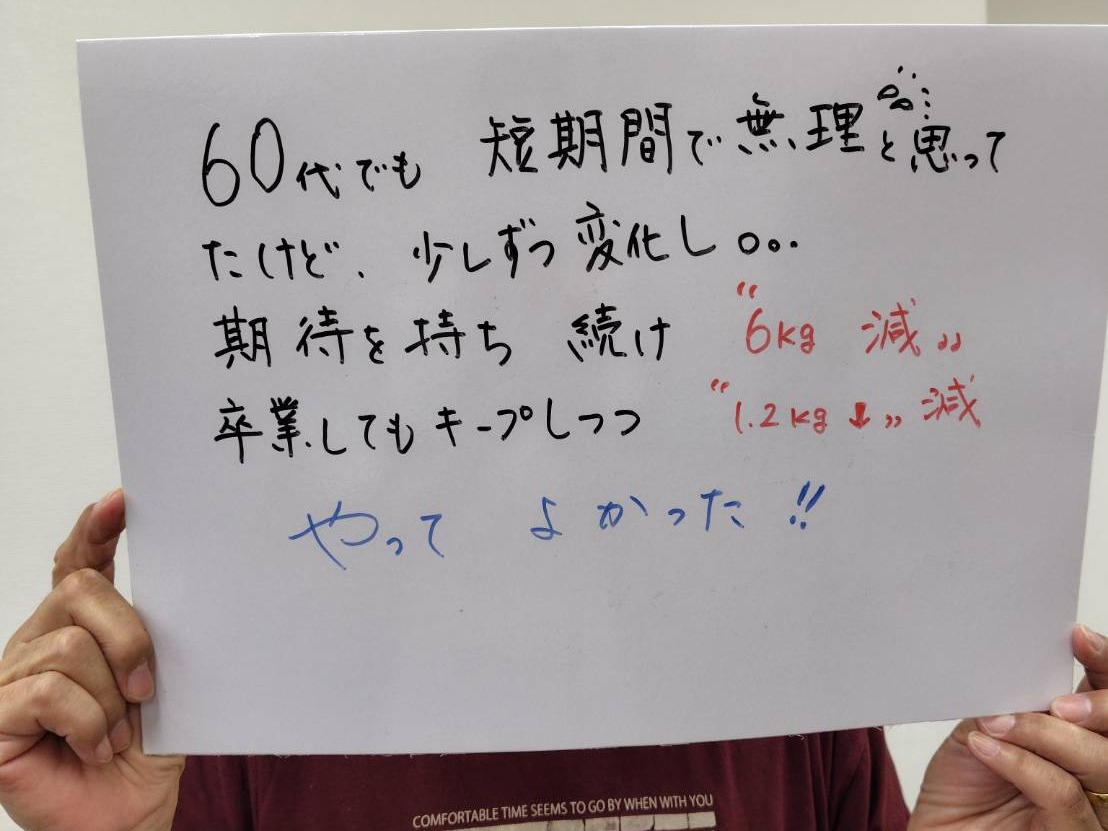 60代でも 短期間で無理と思って
たけど、少しずつ変化し。。.
期待を持ち 続け "6kg 減„
卒業してもキープしつつ "1.2kg↓„ 減
やって よかった!!
COMFORTABLE TIME SEEMS TO GO BY WHEN WITH YOU